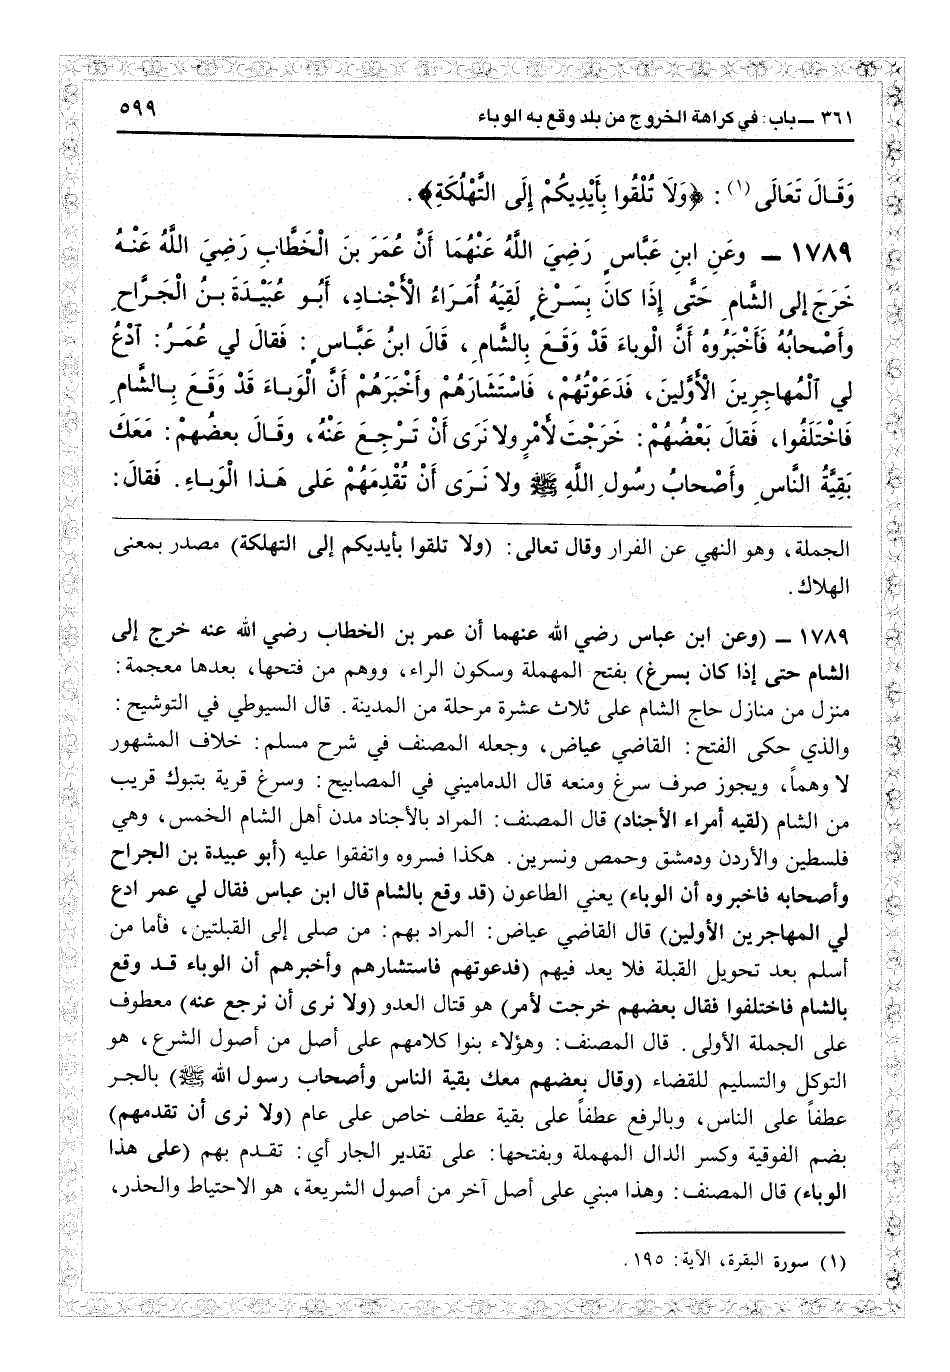 ٣٦١ ــ باب: في كراهة الخروج من بلد وقع به الوباء ٥٩٩
وَقَالَ تَعَالَى(١): ﴿وَلَا تُلْقُوا بِأَيْدِيكُمْ إِلَى التَّهْلُكَةِ﴾.
١٧٨٩ ــ وعَنِ ابنِ عَبَّاسٍ رَضِيَ اللَّهُ عَنْهُمَا أَنَّ عُمَرَ بنَ الْخَطَّابِ رَضِيَ اللَّهُ عَنْهُ
خَرَجَ إلى الشَّامِ حَتَّى إِذَا كانَ بِسَرْغٍ لَقِيَهُ أُمَرَاءُ الأَجْنادِ، أَبُو عُبَيْدَةَ بنُ الْجَرَّاحِ
وأَصْحابُهُ فَأَخْبَرُوهُ أَنَّ الْوباءَ قَدْ وَقَعَ بِالشَّامِ، قَالَ ابنُ عَبَّاسٍ: فَقالَ لي عُمَرُ: آدْعُ
لي آلْمُهاجِرِينَ الأَوَّلينَ، فَدَعَوْتُهُمْ، فَاسْتَشَارَهُمْ وأَخْبَرَهُمْ أَنَّ الْوَباءَ قَدْ وَقَعَ بِالشَّامِ
فَاخْتَلَفُوا، فَقالَ بَعْضُهُمْ: خَرَجْتَ لأَمْرٍ ولا نَرَى أَنْ تَرْجِعَ عَنْهُ، وقَالَ بعضُهمْ: مَعَكَ
بَقِيَّةُ النَّاسِ وأَصْحابُ رسُولِ اللَّهِ ﷺ ولا نَرَى أَنْ تُقْدِمَهُمْ عَلى هَذا الْوَباءِ. فَقالَ:
الجملة، وهو النهي عن الفرار وقال تعالى: (ولا تلقوا بأيديكم إلى التهلكة) مصدر بمعنى
الهلاك.
١٧٨٩ ــ (وعن ابن عباس رضي الله عنهما أن عمر بن الخطاب رضي الله عنه خرج إلى
الشام حتى إذا كان بسرغ) بفتح المهملة وسكون الراء، ووهم من فتحها، بعدها معجمة:
منزل من منازل حاج الشام على ثلاث عشرة مرحلة من المدينة. قال السيوطي في التوشيح:
والذي حكى الفتح: القاضي عياض، وجعله المصنف في شرح مسلم: خلاف المشهور
لا وهماً، ويجوز صرف سرغ ومنعه قال الدماميني في المصابيح: وسرغ قرية بتبوك قريب
من الشام (لقيه أمراء الأجناد) قال المصنف: المراد بالأجناد مدن أهل الشام الخمس، وهي
فلسطين والأردن ودمشق وحمص ونسرين. هكذا فسروه واتفقوا عليه (أبو عبيدة بن الجراح
وأصحابه فاخبروه أن الوباء) يعني الطاعون (قد وقع بالشام قال ابن عباس فقال لي عمر ادع
لي المهاجرين الأولين) قال القاضي عياض: المراد بهم: من صلى إلى القبلتين، فأما من
أسلم بعد تحويل القبلة فلا يعد فيهم (فدعوتهم فاستشارهم وأخبرهم أن الوباء قد وقع
بالشام فاختلفوا فقال بعضهم خرجت لأمر) هو قتال العدو (ولا نرى أن نرجع عنه) معطوف
على الجملة الأولى. قال المصنف: وهؤلاء بنوا كلامهم على أصل من أصول الشرع، هو
التوكل والتسليم للقضاء (وقال بعضهم معك بقية الناس وأصحاب رسول الله ﷺ) بالجر
عطفاً على الناس، وبالرفع عطفاً على بقية عطف خاص على عام (ولا نرى أن تقدمهم)
بضم الفوقية وكسر الدال المهملة وبفتحها: على تقدير الجار أي: تقدم بهم (على هذا
الوباء) قال المصنف: وهذا مبني على أصل آخر من أصول الشريعة، هو الاحتياط والحذر،
(١) سورة البقرة، الآية: ١٩٥.